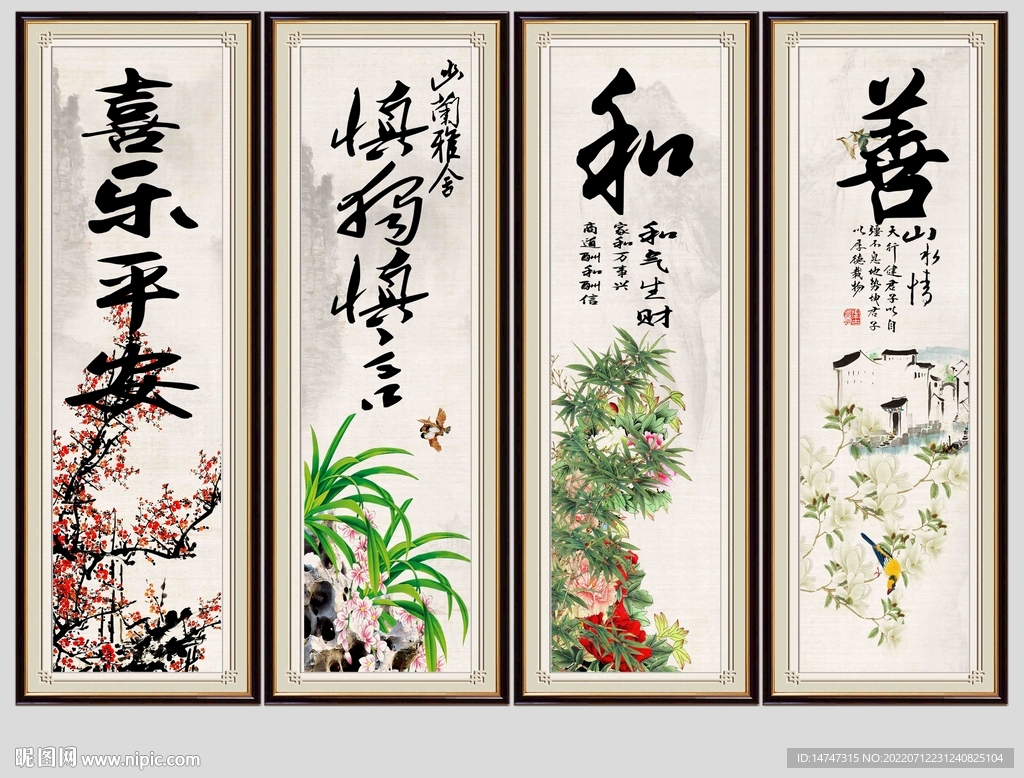 喜乐平安
幽蘭雅舍
慎獨慎言
和
和气生财
家和万事兴
商道酬和酬信
善
山水情
天行健君子以自
强不息地势坤君子
以厚德载物
昵图网 www.nipic.com
ID:14747315 NO:20220712231240825104